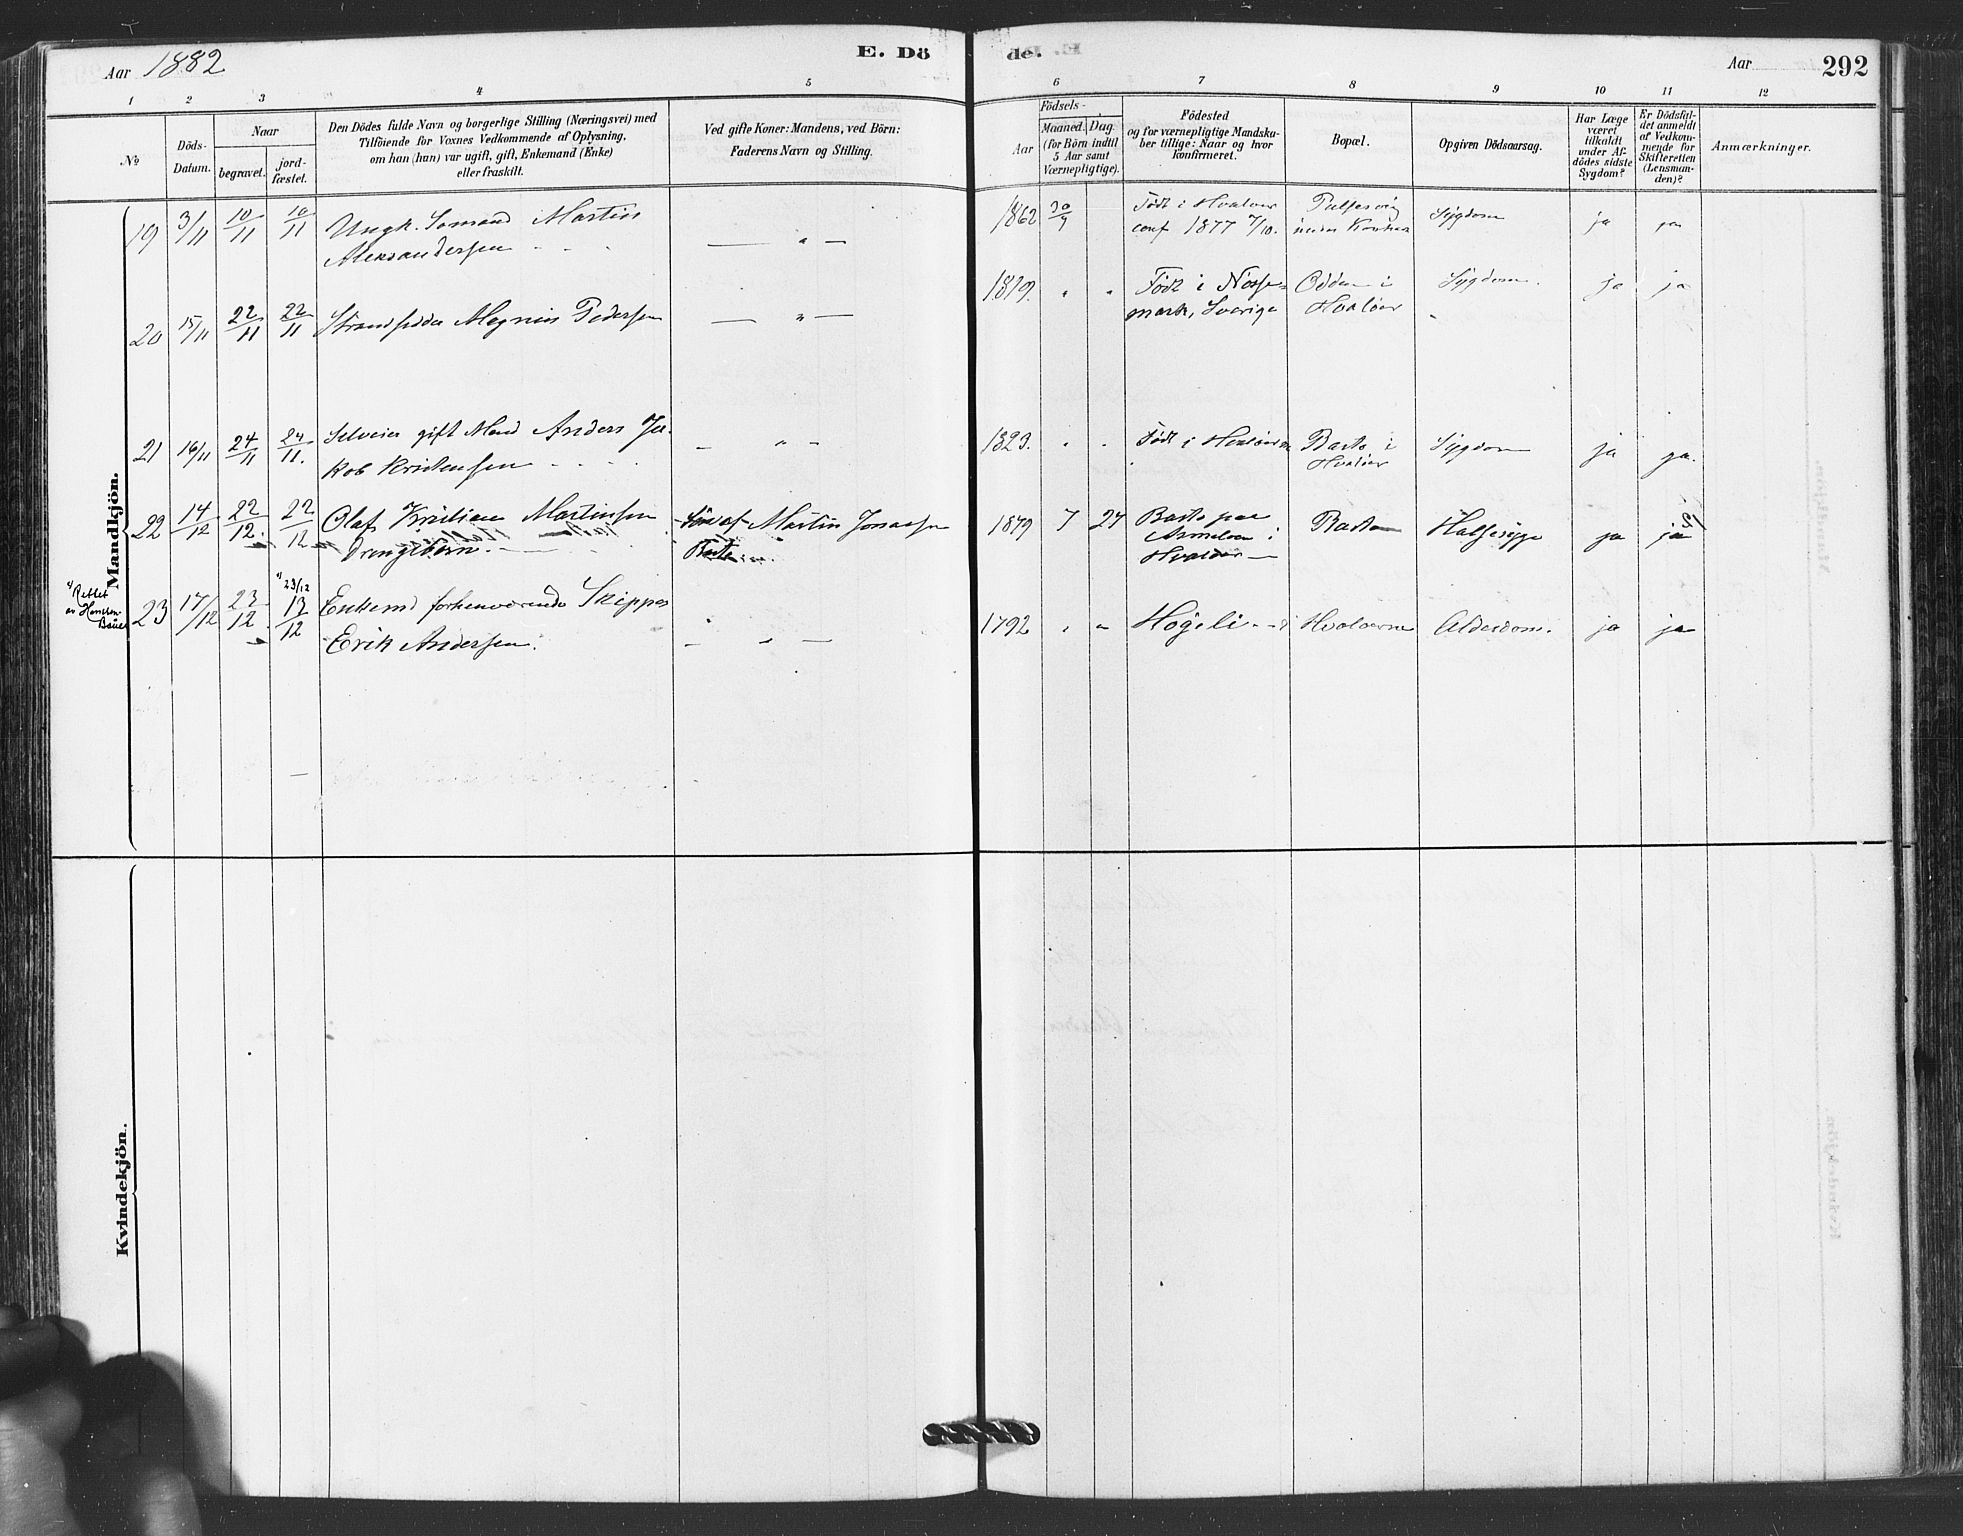 Aar 1882
E. Dö
de.
Aar
292
1 2 3 4 5 6 7 8 9 10 11 12
№
Döds-
Datum.
Naar
begravet.
jord-
fæstet.
Den Dödes fulde Navn og borgerlige Stilling (Næringsvei) med
Tilföiende for Voxnes Vedkommende af Oplysning,
om han (hun) var ugift, gift, Enkemand (Enke)
eller fraskilt.
Ved gifte Koner: Mandens, ved Börn:
Faderens Navn og Stilling.
Födsels-
Aar
Maaned. Dag.
(for Börn indtil
5 Aar samt
Værnepligtige).
Födested
og for værnepligtige Mandska-
ber tillige: Naar og hvor
konfirmeret.
Bopæl.
Opgiven Dödsaarsag.
Har Læge
været
tilkaldt
under Af-
dödes sidste
Sygdom?
Er Dödsfal-
det anmeldt
af Vedkom-
mende for
Skifteretten
(Lensman-
den)?
Anmærkninger.
Mandkjön.
19 3/11 10/11 10/11 Ungk. Sömand Martin
Aleksandersen
— " —
1862 30/9 Födt i Hvaløer
conf 1877 7/10.
Sÿgdom ja ja
20 15/11 22/11 22/11 Strandsidder Magnus Pedersen
— " —
1819. " " Födt i Nosse-
mark, Sverige
Odden i
Hvaløer
Sÿgdom. ja ja
21 16/11 24/11 24/11. Selveier gift Mand Anders Ja-
kob Kristensen
— " —
1823. " " Födt i Hvaløerne
Barto i
Hvaløer
Sÿgdom ja ja.
22 14/12 22/12. 22/12 Olaf Kristian Martinsen
Drengebarn.
Sön af Martin Jonassen
Barto
1879 7 27 Barto paa
Asmaløen i
Hvaløer
Barto Halsesyge ja ja
*) Rettet
av Henrichsen
Bauer
23 17/12 23/12. *) 23/12
13/12 Enkemd forhenværende Skipper
Erik Andersen.
— " —
1792 " " Högeli Hvaløerne Alderdom. ja ja
Kvindekjön.